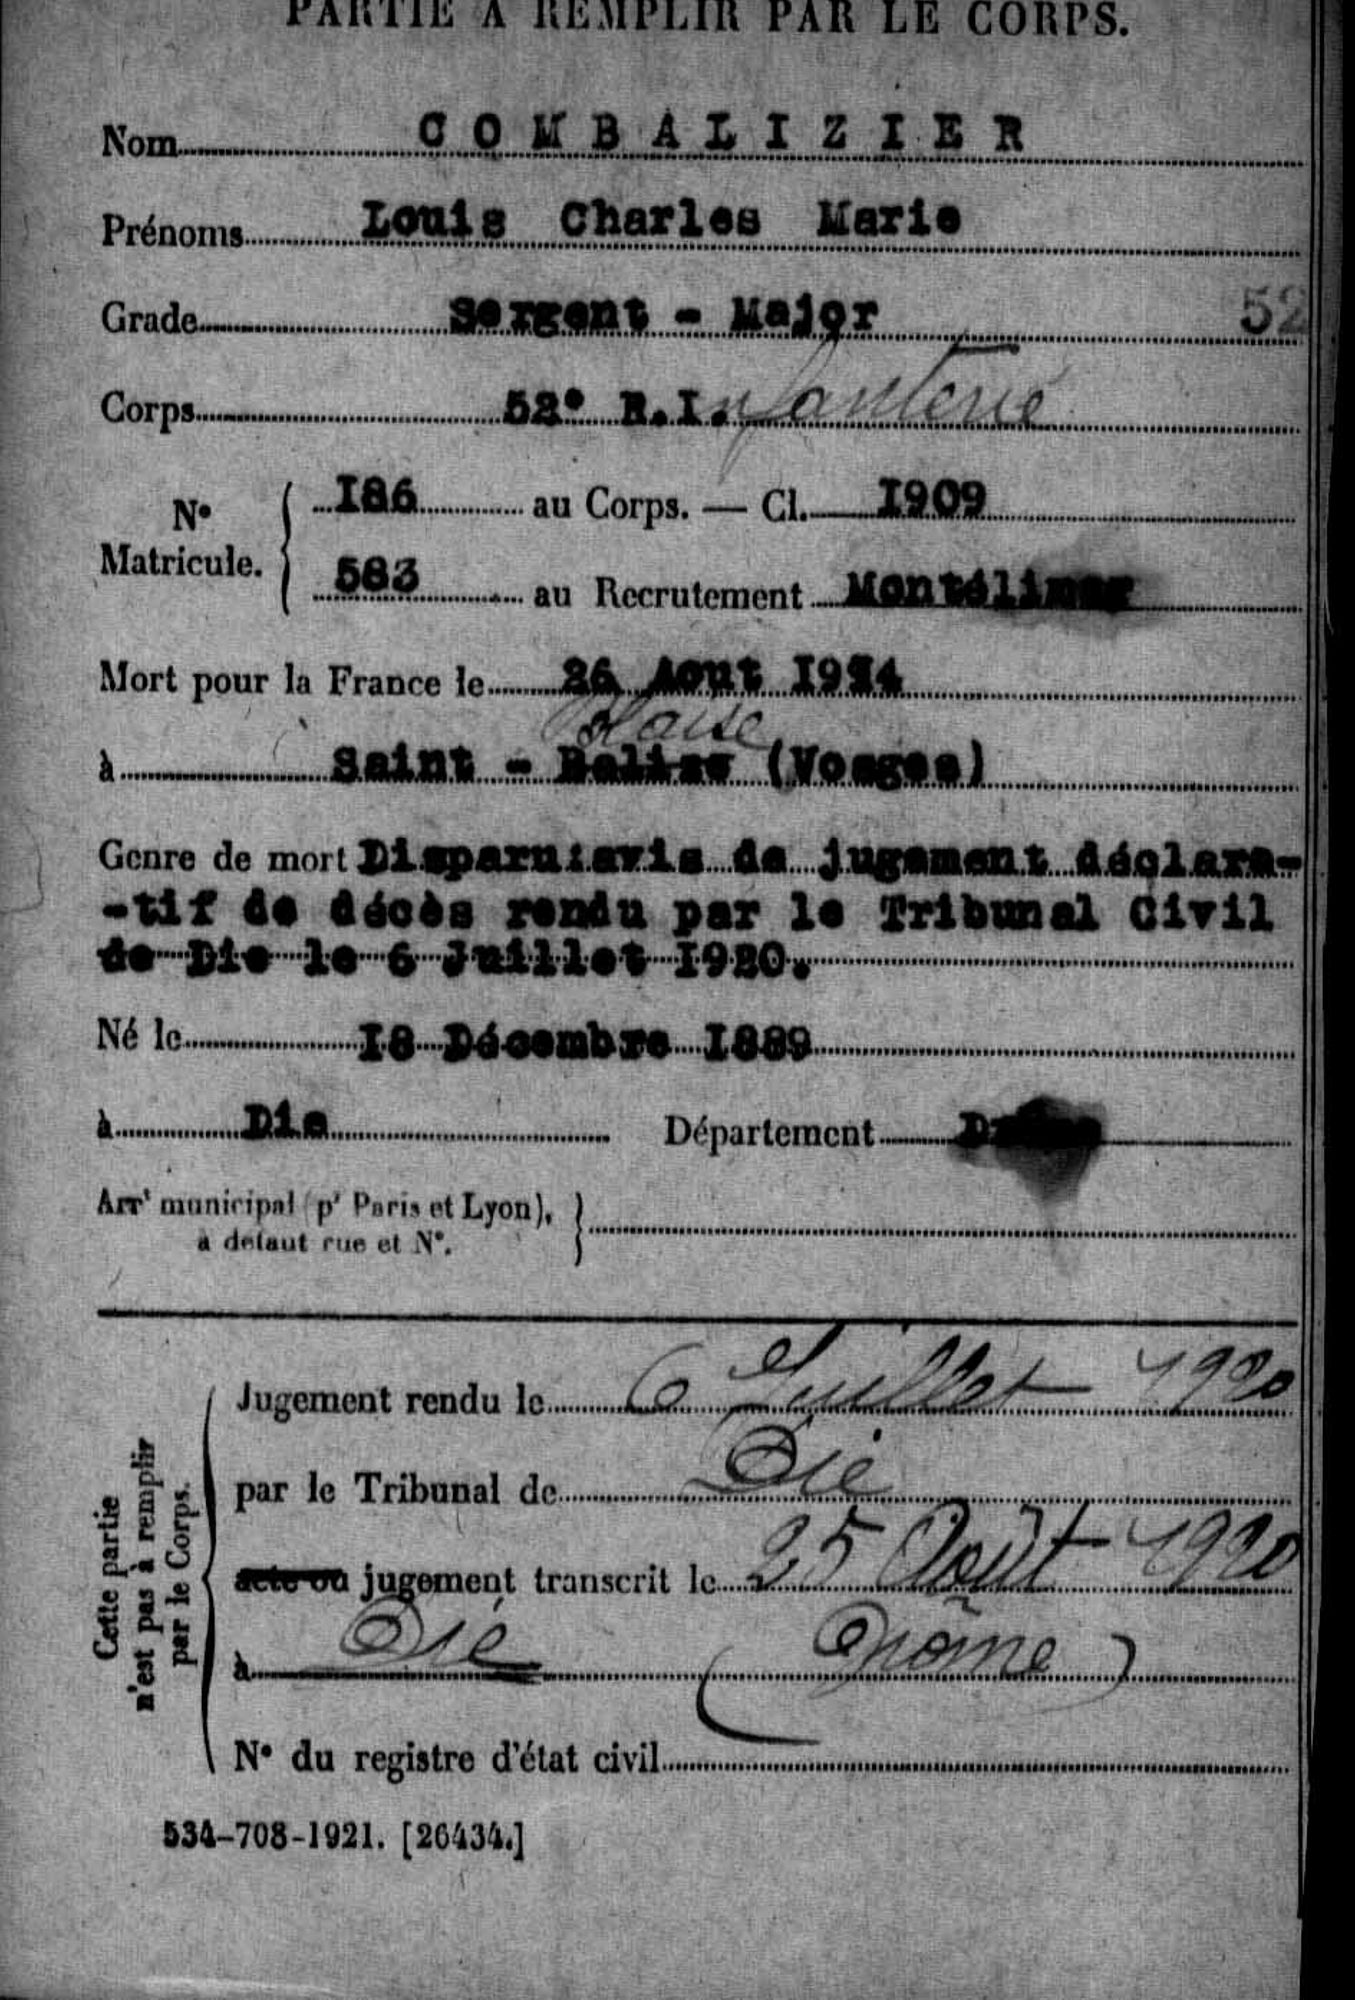 PARTIE À REMPLIR PAR LE CORPS.
Nom COMBALIZIER
Prénoms Louis Charles Marie
Grade Sergent - Major
52
Corps 52e R.I.nfanterie
No Matricule. { 186 au Corps. — Cl. 1909
583 au Recrutement Montélimar
Mort pour la France le 26 Aout 1914
Blaise
à Saint - Belize (Vosges)
Genre de mort Disparu:avis de jugement déclara-
-tif de décès rendu par le Tribunal Civil
de Die le 6 Juillet 1920.
Né le 18 Décembre 1889
à Die Département Drôme
Arrt municipal (pr Paris et Lyon),
à défaut rue et No.
Cette partie n'est pas à remplir par le Corps.
Jugement rendu le 6 Juillet 1920
par le Tribunal de Die
acte ou jugement transcrit le 25 Août 1920
à Die (Drôme)
No du registre d'état civil
534-708-1921. [26434.]